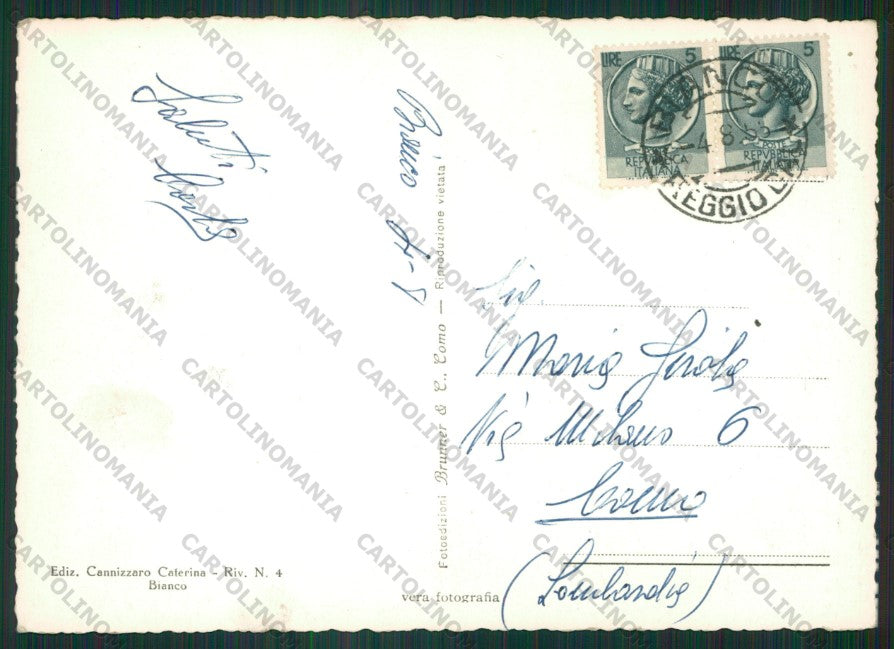 Saluti
Bianco 4-8
Fotoedizioni Brunner & C., Como — Riproduzione vietata
Ediz. Cannizzaro Caterina - Riv. N. 4
Bianco
vera fotografia
LIRE 5
POSTE
REPVBBLICA
ITALIANA
LIRE 5
POSTE
REPVBBLICA
ITALIANA
BIANCO
4.8.55
REGGIO CAL.
Sig.
Maria
Via Milano 6
Como
(Lombardia)
CARTOLINOMANIA